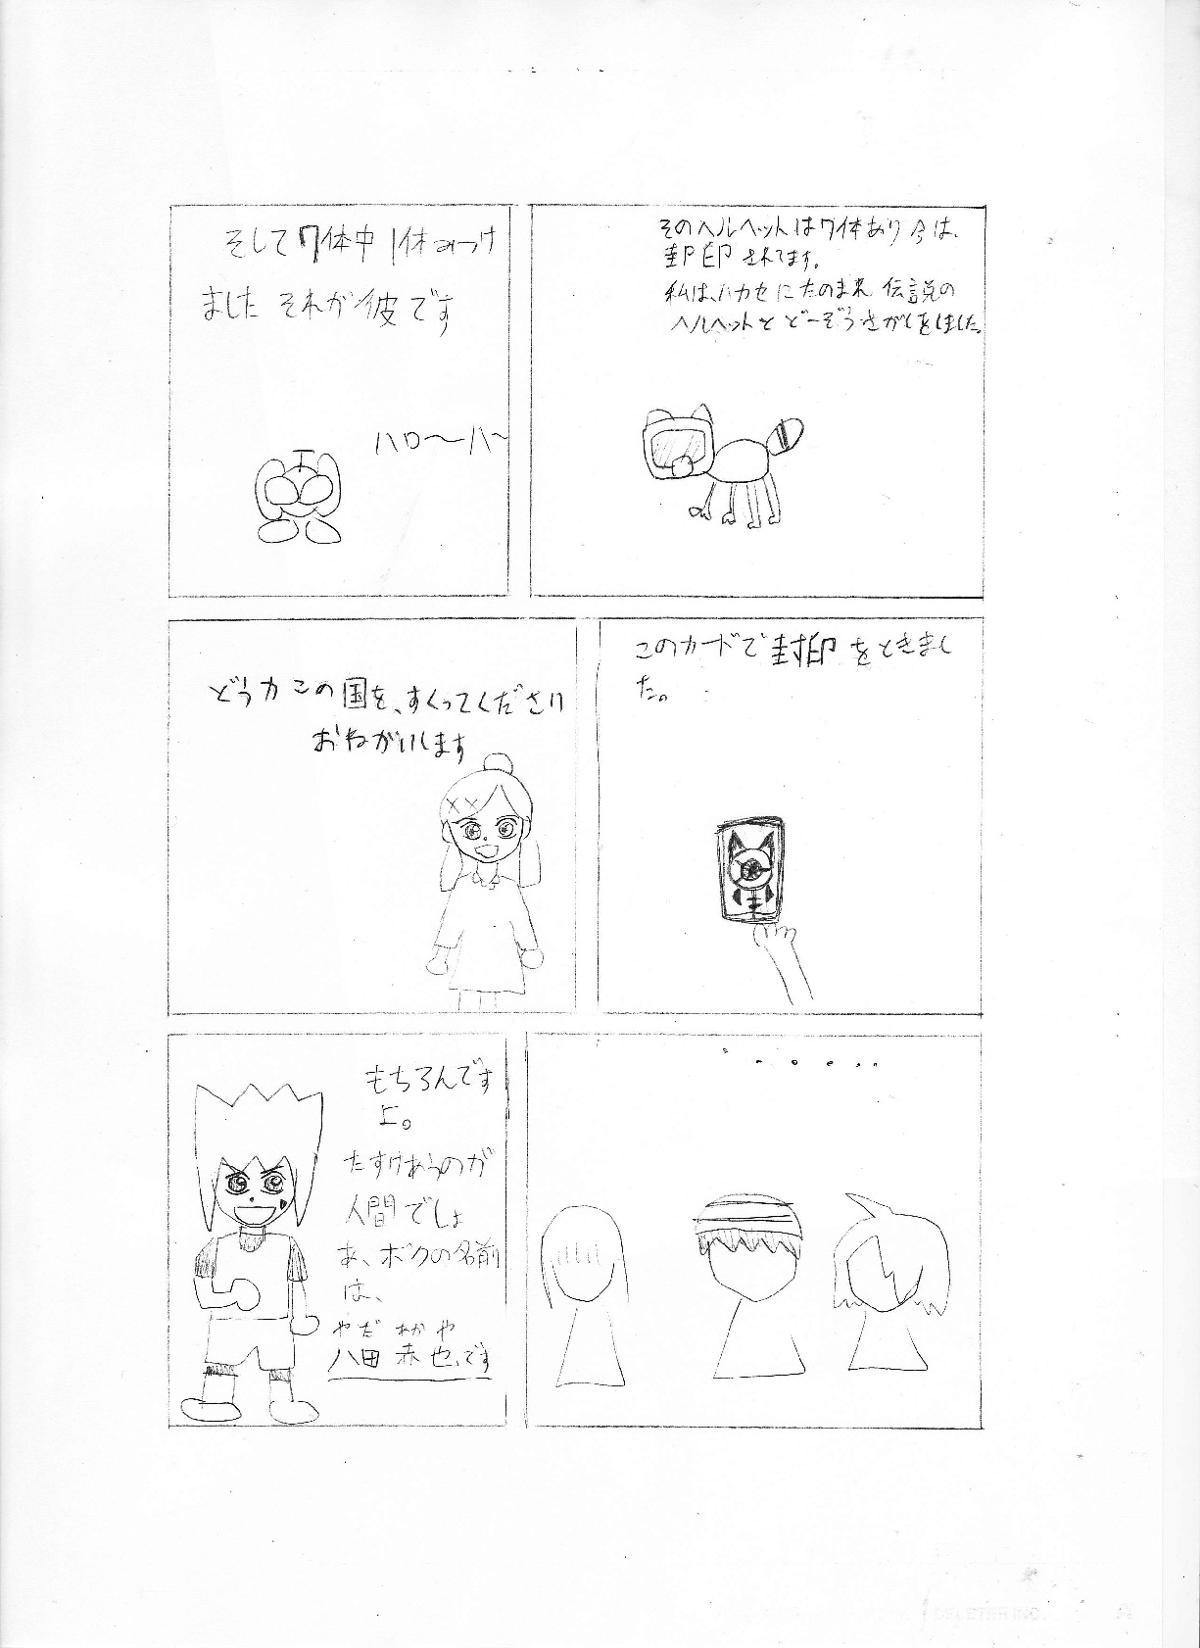 そのヘルペットは7体あり今は、
封印されてます。
私は、ハカセにたのまれ伝説の
ヘルペットとどーぞうさがしをしました。
そして7体中1体みつけ
ました それが彼です
ハロ〜ハ〜
このカードで封印をときまし
た。
どうかこの国を、すくってください
おねがいします
......
もちろんです
よ。
たすけあうのが
人間でしょ
あ、ボクの名前
は、
やだ あかや
八田 赤也、です